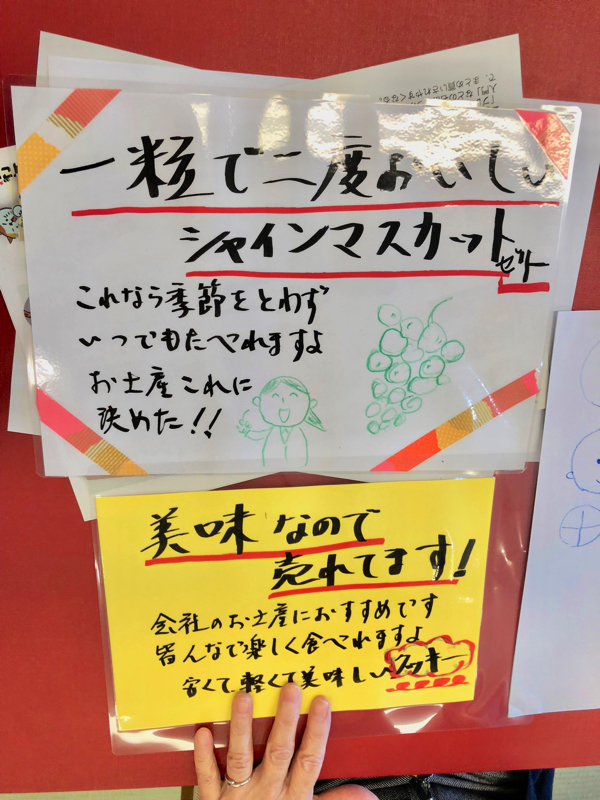 一粒で二度おいしい
シャインマスカットセット
これなら季節をとわず
いつでもたべれますよ
お土産これに
決めた!!
美味なので
売れてます!
会社のお土産におすすめです
皆んなで楽しく食べれますよ
安くて軽くて美味しいクッキー